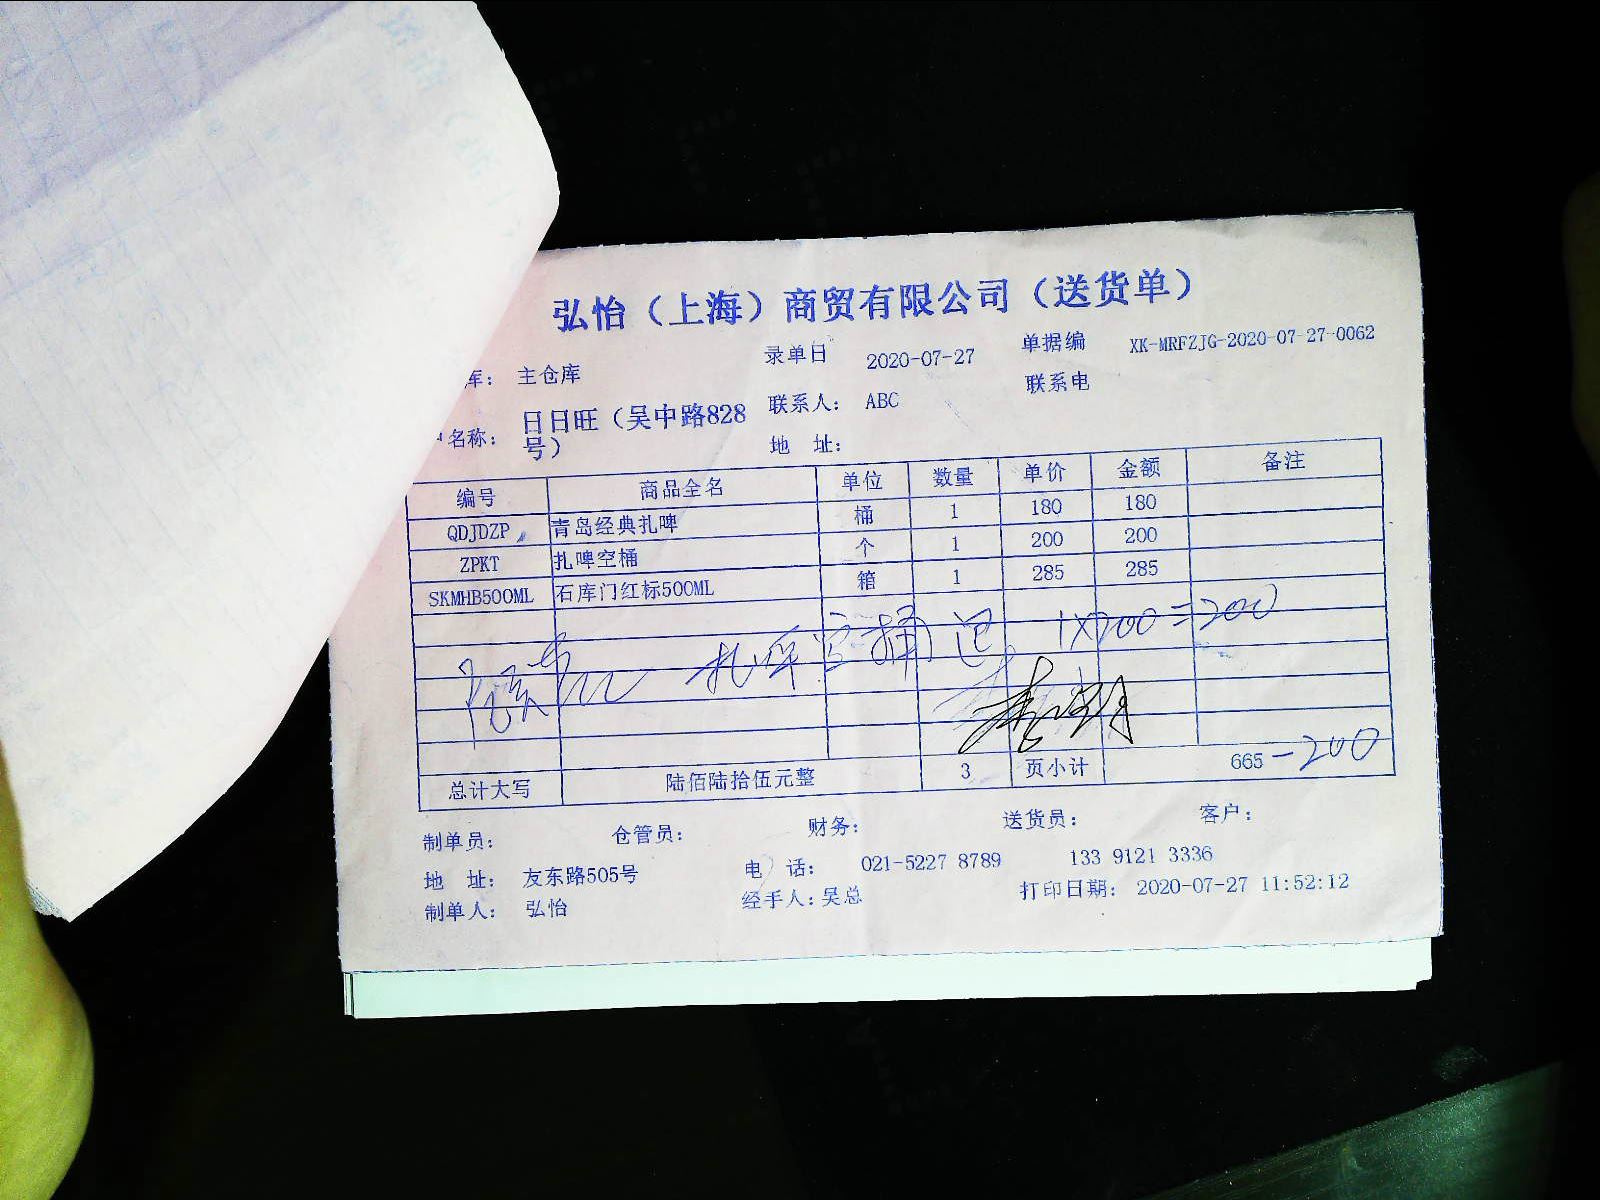 弘怡（上海）商贸有限公司（送货单）
库： 主仓库 录单日 2020-07-27 单据编 XK-MRFZJG-2020-07-27-0062
名称： 日日旺（吴中路828号） 联系人： ABC 联系电
地 址：
编号 商品全名 单位 数量 单价 金额 备注
QDJDZP 青岛经典扎啤 桶 1 180 180
ZPKT 扎啤空桶 个 1 200 200
SKMHB500ML 石库门红标500ML 箱 1 285 285
扎啤空桶 退 1×200=200
总计大写 陆佰陆拾伍元整 3 页小计 665 -200
制单员： 仓管员： 财务： 送货员： 客户：
地 址： 友东路505号 电 话： 021-5227 8789 133 9121 3336
制单人： 弘怡 经手人：吴总 打印日期： 2020-07-27 11:52:12